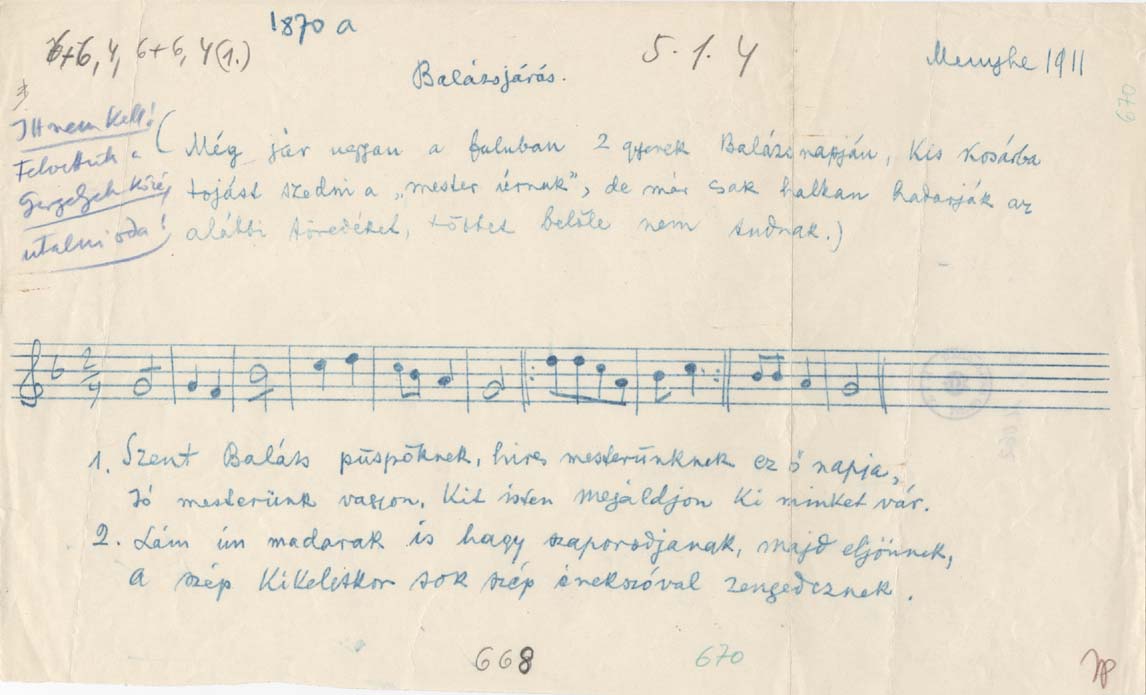 1870 a
6+6, 4, 6+6, 4 (1.)
5. 1. 4
Menyhe 1911
Balázsjárás.
670
Itt nem kell!
Felvettük a
Gergelyek közé,
utalni oda!
(Még jár ugyan a faluban 2 gyerek Balázs napján, kis kosárba
tojást szedni a „mester úrnak", de már csak halkan hadarják az
alábbi töredéket, többet belőle nem tudnak.)
2/4
1. Szent Balázs püspöknek, hires mesterünknek ez ő napja,
Jó mesterünk vagyon, Kit isten megáldjon ki minket vár.
2. Lám ím madarak is hagy szaporodjanak, majd eljönnek,
A szép kikeletkor sok szép énekszóval zengedeznek.
668
670